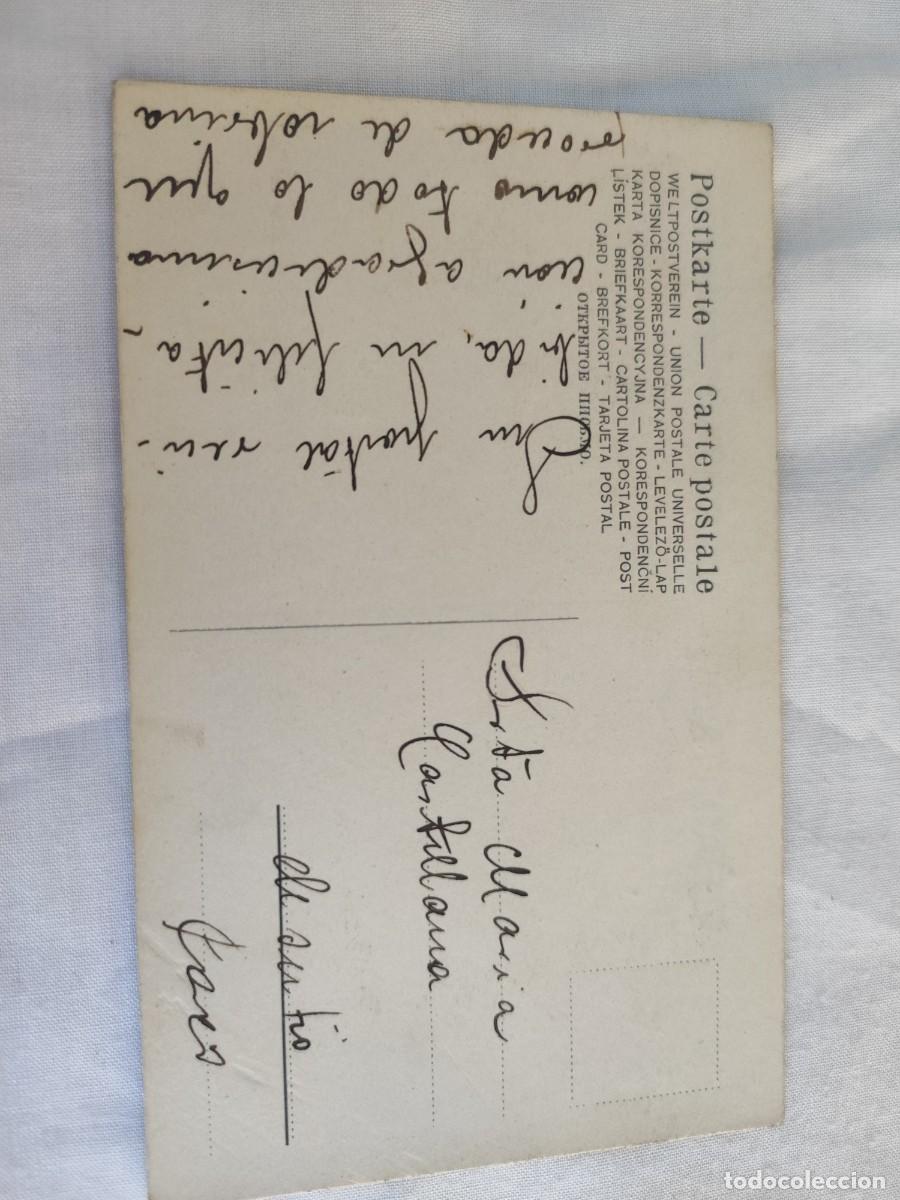 Postkarte — Carte postale
WELTPOSTVEREIN - UNION POSTALE UNIVERSELLE
DOPISNICE - KORRESPONDENZKARTE - LEVELEZÖ-LAP
KARTA KORESPONDENCYJNA — KORESPONDENČNÍ
LÍSTEK - BRIEFKAART - CARTOLINA POSTALE - POST
CARD - BREFKORT - TARJETA POSTAL
ОТКРЫТОЕ ПИСЬМО.
Su postal reci-
bida, m felicita,
cion agradecisima
como todo lo que
de sobrina
Srta Maria
Castellana
todocoleccion